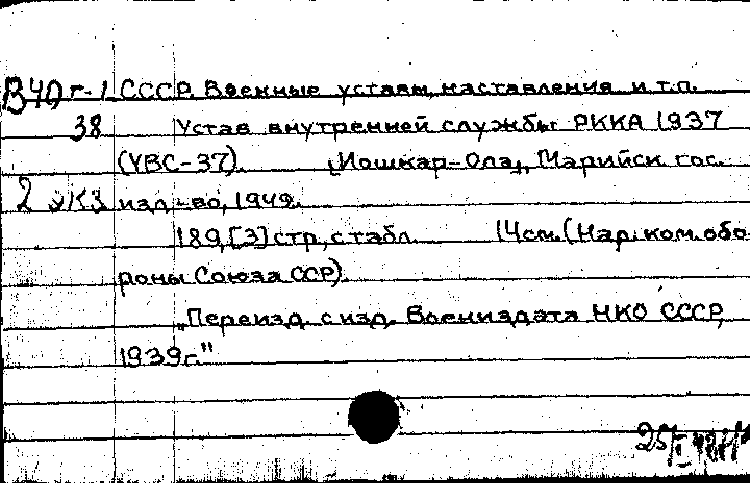 В40г-1 СССР. Военные уставы, наставления и т.п.
38 Устав внутренней службы РККА 1937
(УВС-37). [Йошкар-Ола], Марийск. гос.
2 экз изд-во, 1942.
189,[3]стр., с табл. 14см. (Нар. ком. обо-
роны Союза ССР).
„Переизд. с изд. Воениздата НКО СССР,
1939г."
25/I